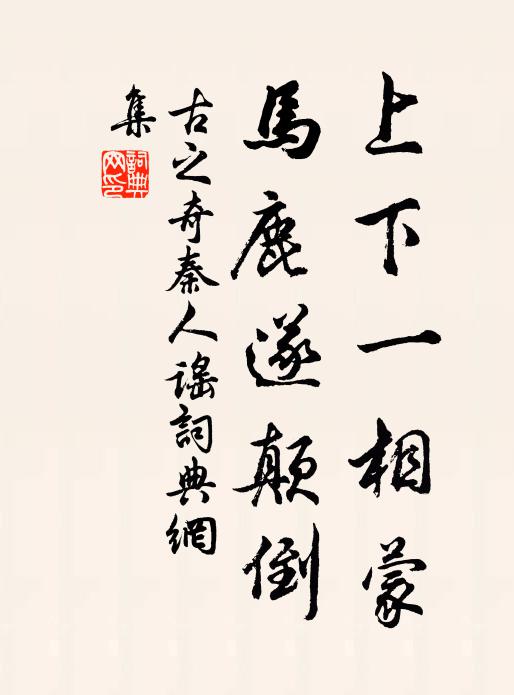 上下一相蒙
馬鹿遂顛倒
古之奇秦人謡詞典網
集
詞典
网印